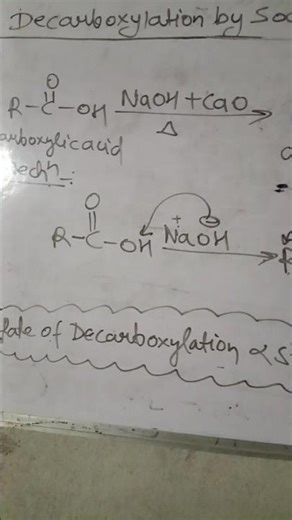 Decarboxylation by
O
R-C-OH NaOH + CaO
Δ
arboxylic acid
echⁿ-:
O
R-C-OH NaOH
+ -
R
Rate of Decarboxylation ∝ S